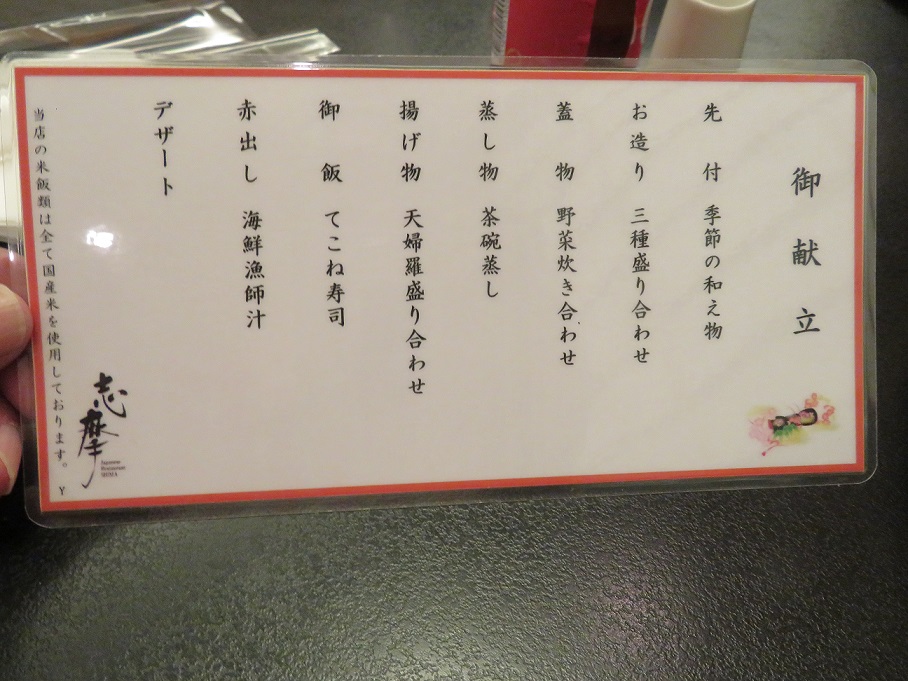 御献立
先付 季節の和え物
お造り 三種盛り合わせ
蓋物 野菜炊き合わせ
蒸し物 茶碗蒸し
揚げ物 天婦羅盛り合わせ
御飯 てこね寿司
赤出し 海鮮漁師汁
デザート
志摩
Japanese
Restaurant
SHIMA
当店の米飯類は全て国産米を使用しております。 Y